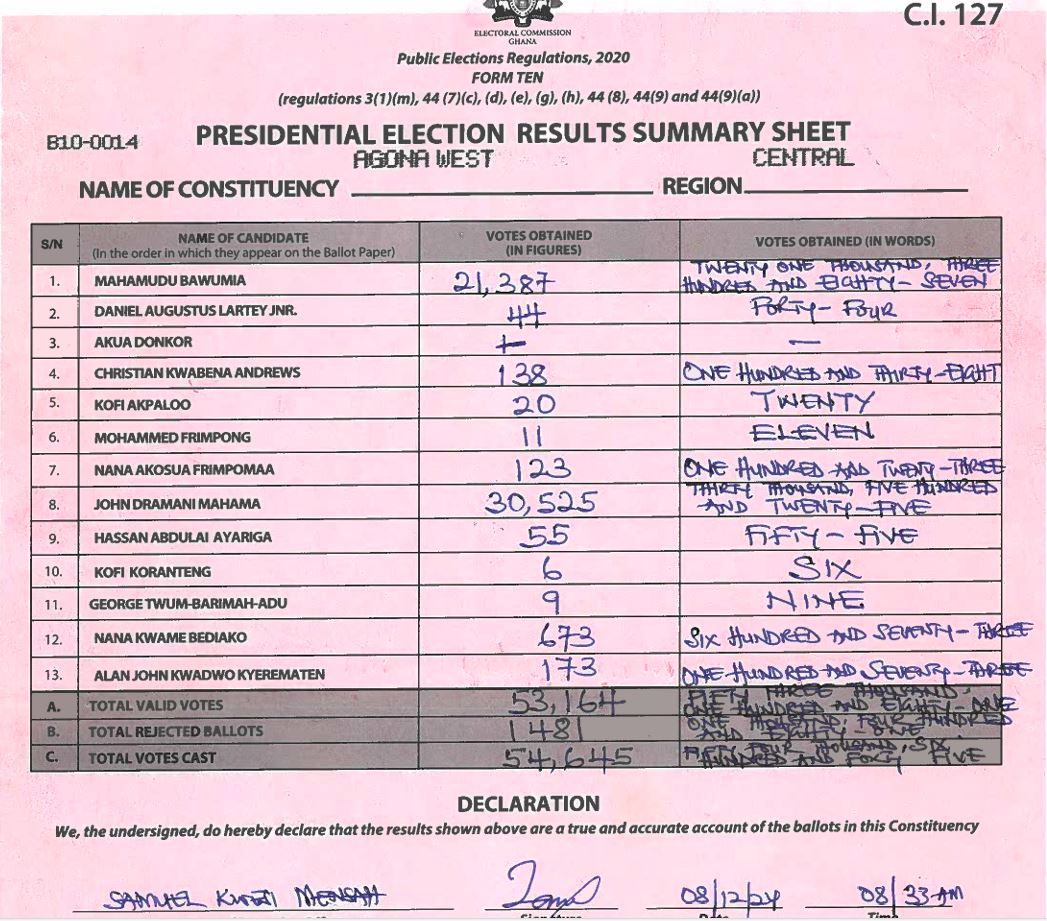 C.I. 127
ELECTORAL COMMISSION
GHANA
Public Elections Regulations, 2020
FORM TEN
(regulations 3(1)(m), 44 (7)(c), (d), (e), (g), (h), 44 (8), 44(9) and 44(9)(a))
B10-0014 PRESIDENTIAL ELECTION RESULTS SUMMARY SHEET
AGONA WEST CENTRAL
NAME OF CONSTITUENCY REGION
S/N NAME OF CANDIDATE (In the order in which they appear on the Ballot Paper) VOTES OBTAINED (IN FIGURES) VOTES OBTAINED (IN WORDS)
1. MAHAMUDU BAWUMIA 21,387 TWENTY ONE THOUSAND, THREE HUNDRED AND EIGHTY-SEVEN
2. DANIEL AUGUSTUS LARTEY JNR. 44 FORTY-FOUR
3. AKUA DONKOR — —
4. CHRISTIAN KWABENA ANDREWS 138 ONE HUNDRED AND THIRTY-EIGHT
5. KOFI AKPALOO 20 TWENTY
6. MOHAMMED FRIMPONG 11 ELEVEN
7. NANA AKOSUA FRIMPOMAA 123 ONE HUNDRED AND TWENTY-THREE
8. JOHN DRAMANI MAHAMA 30,525 THIRTY THOUSAND, FIVE HUNDRED AND TWENTY-FIVE
9. HASSAN ABDULAI AYARIGA 55 FIFTY-FIVE
10. KOFI KORANTENG 6 SIX
11. GEORGE TWUM-BARIMAH-ADU 9 NINE
12. NANA KWAME BEDIAKO 673 SIX HUNDRED AND SEVENTY-THREE
13. ALAN JOHN KWADWO KYEREMATEN 173 ONE HUNDRED AND SEVENTY-THREE
A. TOTAL VALID VOTES 53,164 FIFTY THREE THOUSAND, ONE HUNDRED AND EIGHTY-ONE
B. TOTAL REJECTED BALLOTS 1481 ONE THOUSAND, FOUR HUNDRED AND EIGHTY-ONE
C. TOTAL VOTES CAST 54,645 FIFTY FOUR THOUSAND, SIX HUNDRED AND FORTY FIVE
DECLARATION
We, the undersigned, do hereby declare that the results shown above are a true and accurate account of the ballots in this Constituency
SAMUEL MENSAH 08/12/24 08/33 AM
Signature Date Time